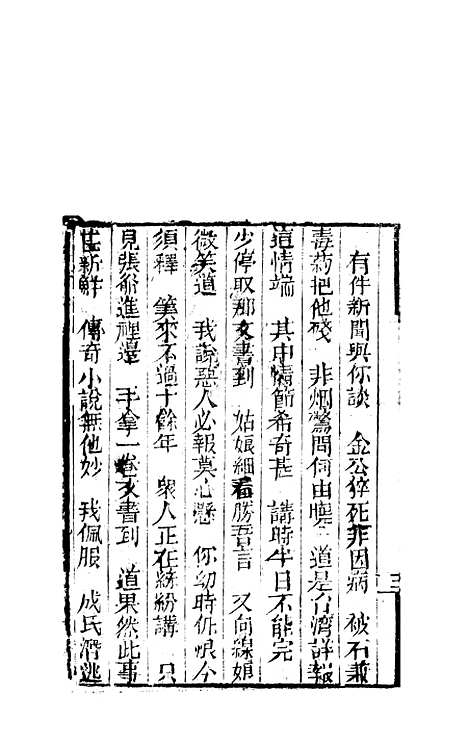 有件新聞與你談　金公猝死非因病　被不兼
毒药把他殘　非烟驚問何由曉　道是台湾詳報
這情端　其中情節希奇甚　講時半日不能完
少停取那文書到　姑娘細看勝吾言　又向線娘
微笑道　我說惡人必報莫心懸　你幼時仇恨今
須釋　筭來不過十餘年　衆人正在紛紛講　只
見張爺進裡邊　手拿一卷文書到　道果然此事
甚新鮮　傳奇小說無他妙　我佩服　成氏潛逃